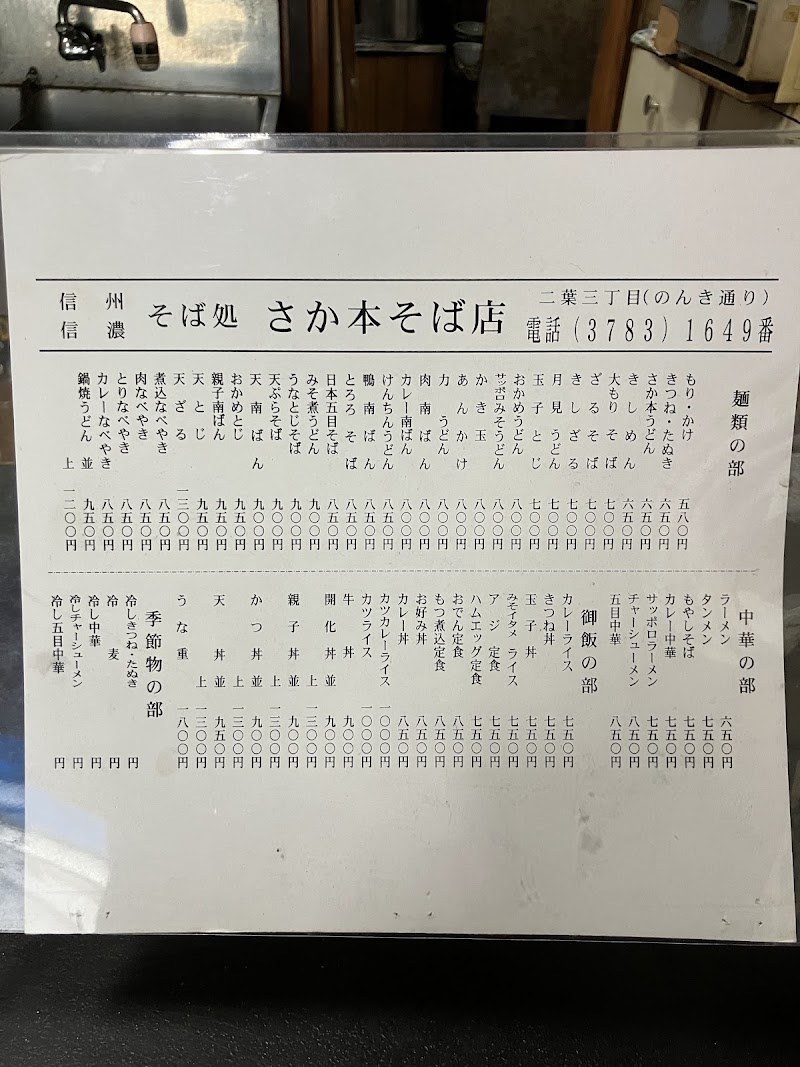 信州
信濃
そば処 さか本そば店
二葉三丁目(のんき通り)
電話(3783)1649番
麺類の部
もり・かけ 五八〇円
きつね・たぬき 六五〇円
さか本うどん 六五〇円
きしめん 六五〇円
大もりそば 七〇〇円
ざるそば 七〇〇円
きしざる 七〇〇円
月見うどん 七〇〇円
玉子とじ 七〇〇円
おかめうどん 八〇〇円
サッポロみそうどん 八〇〇円
かき玉 八〇〇円
あんかけ 八〇〇円
力うどん 八〇〇円
肉南ばん 八〇〇円
カレー南ばん 八〇〇円
けんちんうどん 八五〇円
鴨南ばん 八五〇円
とろろそば 八五〇円
日本五目そば 八五〇円
みそ煮うどん 九〇〇円
うなとじそば 九〇〇円
天ぷらそば 九〇〇円
天南ばん 九〇〇円
おかめとじ 九五〇円
親子南ばん 九五〇円
天とじ 九五〇円
天ざる 一三〇〇円
煮込なべやき 八五〇円
肉なべやき 八五〇円
とりなべやき 八五〇円
カレーなべやき 八五〇円
鍋焼うどん 並 九五〇円
上 一二〇〇円
中華の部
ラーメン 六五〇円
タンメン 七五〇円
もやしそば 七五〇円
カレー中華 七五〇円
サッポロラーメン 七五〇円
チャーシューメン 八五〇円
五目中華 八五〇円
御飯の部
カレーライス 七五〇円
きつね丼 七五〇円
玉子丼 七五〇円
みそイタメライス 七五〇円
アジ定食 七五〇円
ハムエッグ定食 七五〇円
おでん定食 八五〇円
もつ煮込定食 八五〇円
お好み丼 八五〇円
カレー丼 八五〇円
カツカレーライス 一〇〇〇円
カツライス 一〇〇〇円
牛丼 九〇〇円
開化丼 並 九〇〇円
上 一三〇〇円
親子丼 並 九〇〇円
上 一三〇〇円
かつ丼 並 九〇〇円
上 一三〇〇円
天丼 並 九五〇円
上 一三〇〇円
うな重 一八〇〇円
季節物の部
冷しきつね・たぬき 円
冷麦 円
冷し中華 円
冷しチャーシューメン 円
冷し五目中華 円